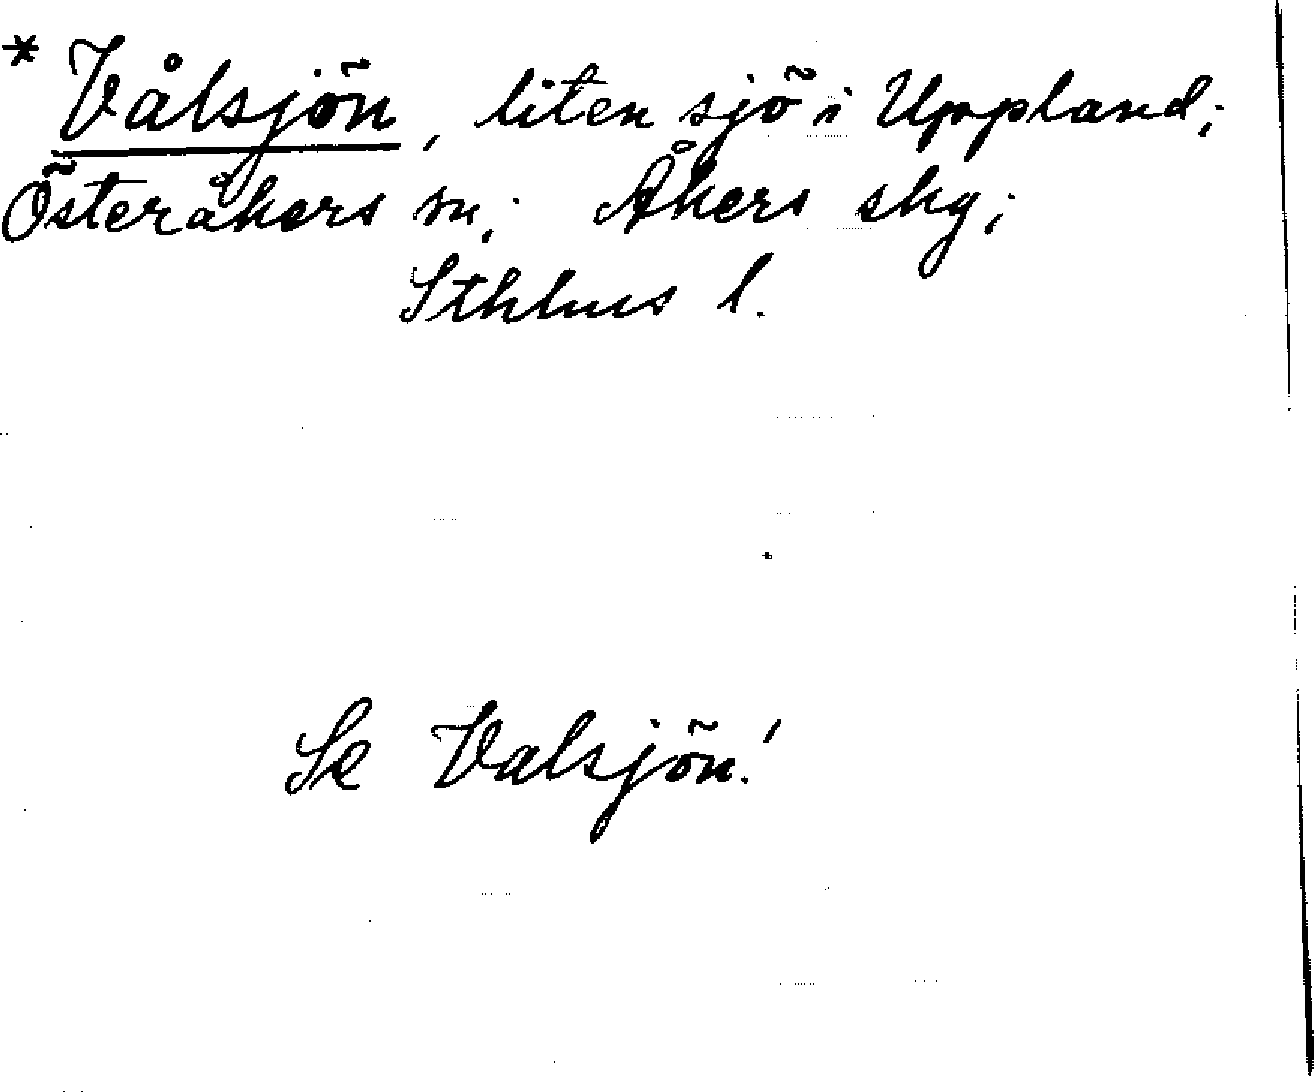 * Vålsjön, liten sjö i Uppland;
Österåkers sn; Åkers skg;
Sthlms l.
Se Valsjön!